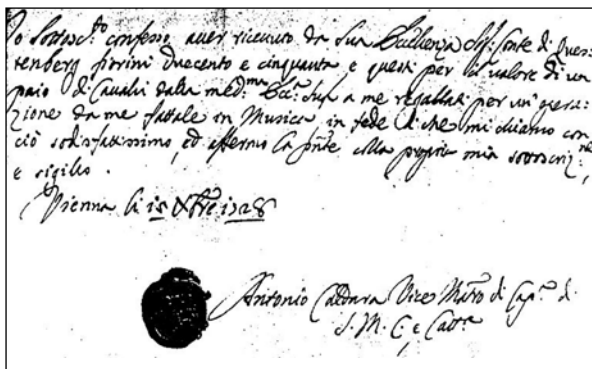 Io Sottosc:to confesso aver ricevuto da Sua Eccellenza Sig: Conte di Ques:
tenberg fiorini duecento e cinquanta e questi per il valore di un
paio di Cavalli dalla med:ma Ecc:a Sua a me regallati per un'opera:
zione da me fattale in Musica in fede di che mi chiamo con
ciò sodisfattissimo, ed affermo la pnte colla propria mia sottoscriz:ne
e sigillo.
Vienna li 15 Xbre 1728
Antonio Caldara Vice Mtro di Cap:a di
S. M. C. e Catt:ca